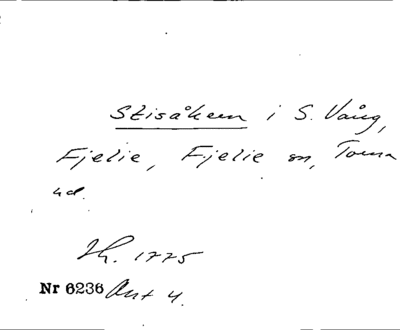 Stisåkern i S. Vång,
Fjelie, Fjelie sn, Torna
hd.
Sk. 1775
Nr 6236 Akt 4.